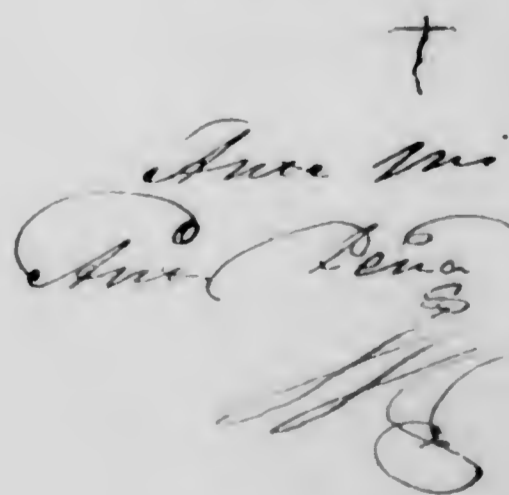 Ante mi
Ant. Peña